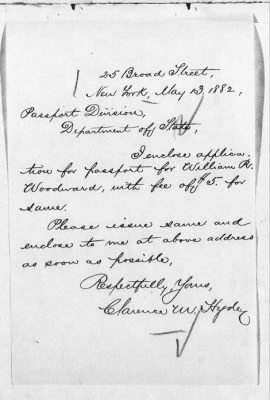 25 Broad Street,
New York, May 13, 1882,
Passport Division,
Department of State,
I enclose applica-
tion for passport for William R.
Woodward, with fee of $5. for
same.
Please issue same and
enclose to me at above address
as soon as possible,
Respectfully, Yours,
Clarence W.